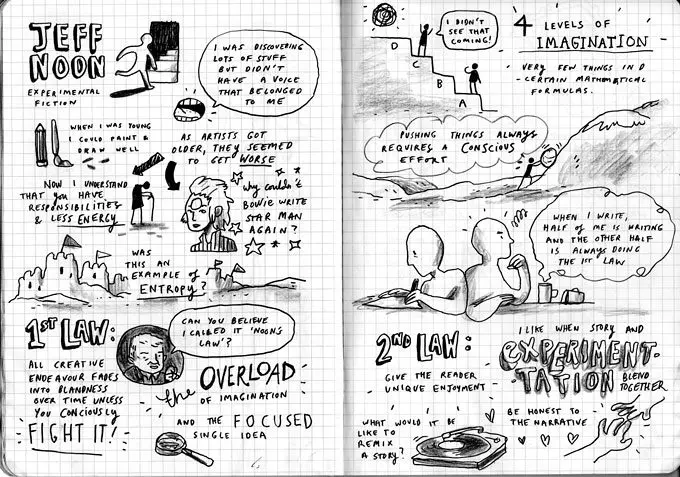 JEFF
NOON
EXPERIMENTAL
FICTION
I WAS DISCOVERING
LOTS OF STUFF
BUT DIDN'T
HAVE A VOICE
THAT BELONGED
TO ME
WHEN I WAS YOUNG
I COULD PAINT &
DRAW WELL
AS ARTISTS GOT
OLDER, THEY SEEMED
TO GET WORSE
NOW I UNDERSTAND
THAT YOU HAVE
RESPONSIBILITIES
& LESS ENERGY
Why couldn't
BOWIE WRITE
STAR MAN
AGAIN?
WAS
THIS AN
EXAMPLE OF
ENTROPY?
1ST LAW:
ALL CREATIVE
ENDEAVOUR FADES
INTO BLANDNESS
OVER TIME UNLESS
YOU CONCIOUSLY
FIGHT IT!
CAN YOU BELIEVE
I CALLED IT 'NOON'S
LAW'?
the OVERLOAD
OF IMAGINATION
AND THE FOCUSED
SINGLE IDEA
I DIDN'T
SEE THAT
COMING!
D
C
B
A
4 LEVELS OF
IMAGINATION
VERY FEW THINGS IN D
- CERTAIN MATHEMATICAL
FORMULAS.
PUSHING THINGS ALWAYS
REQUIRES A CONSCIOUS
EFFORT
WHEN I WRITE,
HALF OF ME IS WRITING
AND THE OTHER HALF
IS ALWAYS DOING
THE 1ST LAW
2ND LAW:
GIVE THE READER
UNIQUE ENJOYMENT
WHAT WOULD IT BE
LIKE TO
REMIX
A STORY?
I LIKE WHEN STORY AND
EXPERIMENT-
TATION BLEND
TOGETHER
BE HONEST TO
THE NARRATIVE